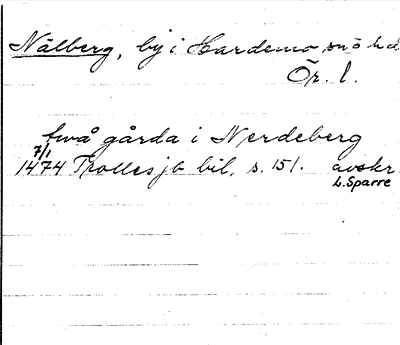 Nälberg, by i Hardemo sn ö hd
Ör. l.
två gårda i Nerdeberg
7/1
1474 Trolles jb bil, s. 151. avskr
L. Sparre